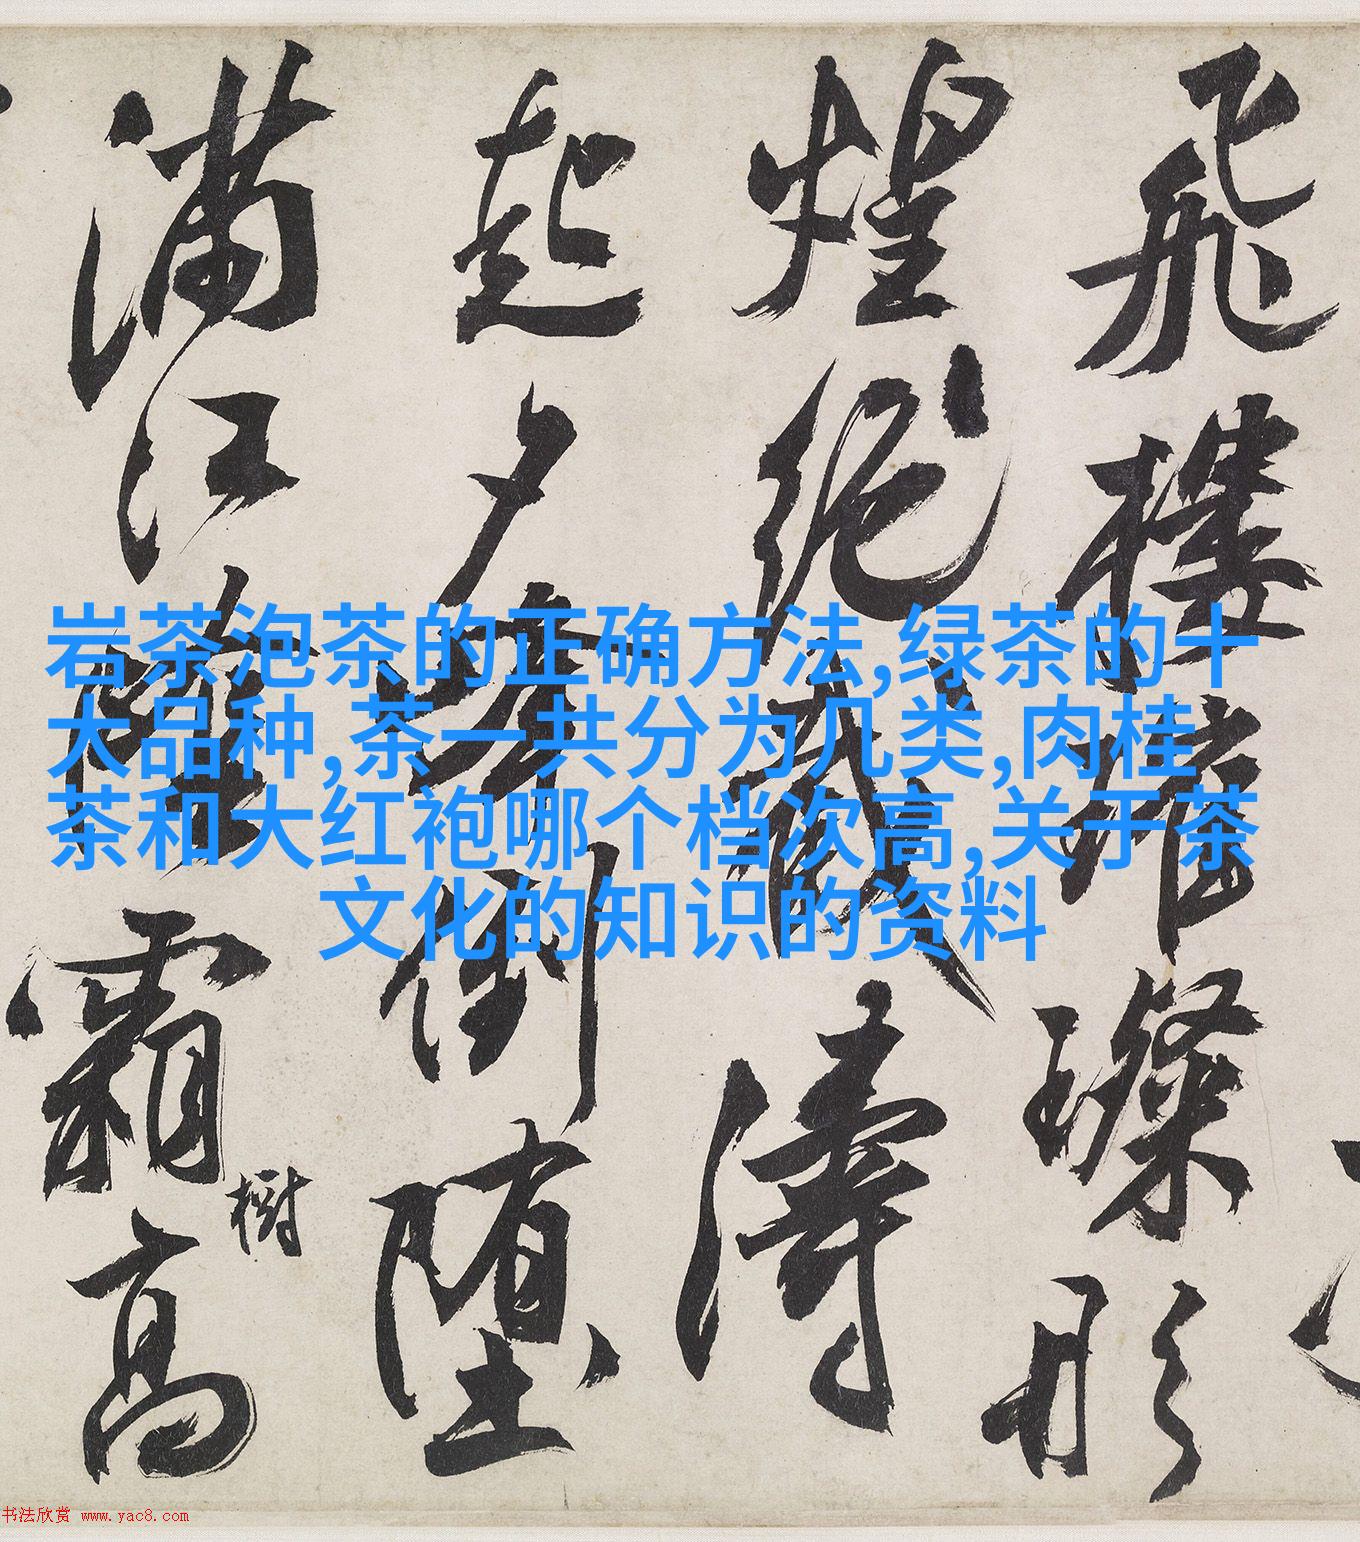 飛樓璀璨形
煌絕濤
起夕倒堕
滿江霜高
樹
岩茶泡茶的正确方法,绿茶的十
大品种,茶一共分为几类,肉桂
茶和大红袍哪个档次高,关于茶
文化的知识的资料
书法欣赏 www.yac8.com